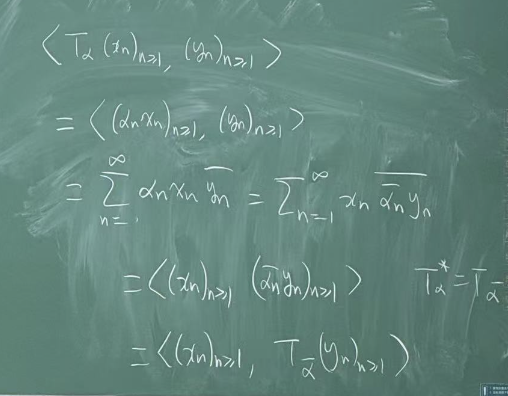 ⟨T_α (x_n)_{n≥1}, (y_n)_{n≥1}⟩
= ⟨(α_n x_n)_{n≥1}, (y_n)_{n≥1}⟩
= ∑_{n=1}^{∞} α_n x_n \overline{y_n} = ∑_{n=1}^{∞} x_n \overline{\overline{α_n} y_n}
= ⟨(x_n)_{n≥1} (\overline{α_n} y_n)_{n≥1}⟩ T_α^* = T_{\overline{α}}
= ⟨(x_n)_{n≥1}, T_{\overline{α}} (y_n)_{n≥1}⟩